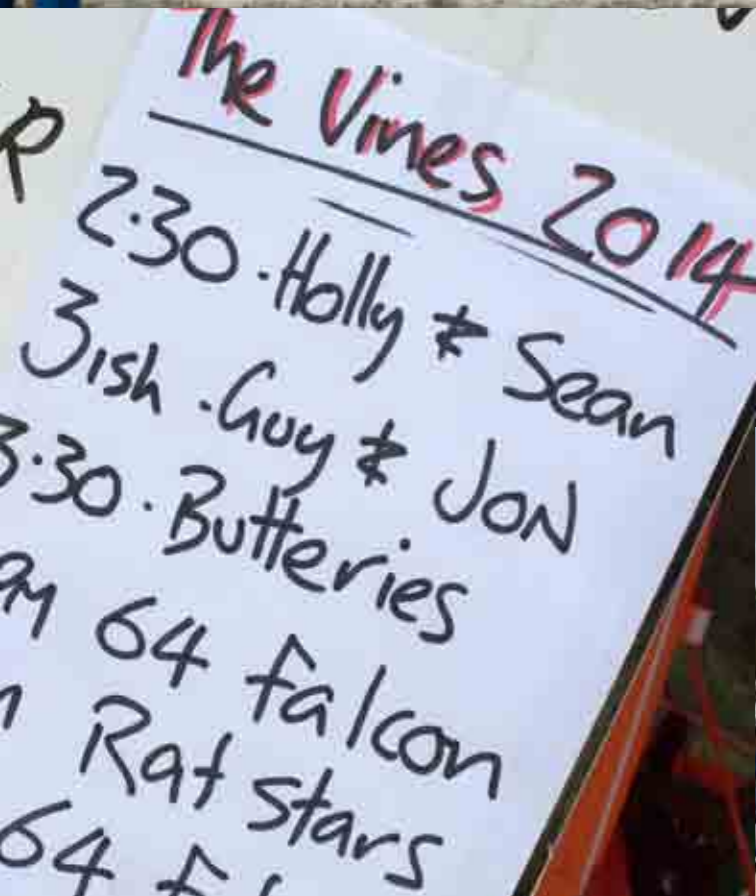 The Vines 2014
2.30 . Holly & Sean
3ish . Guy & JON
3.30 . Butteries
PM 64 Falcon
Rat Stars
64